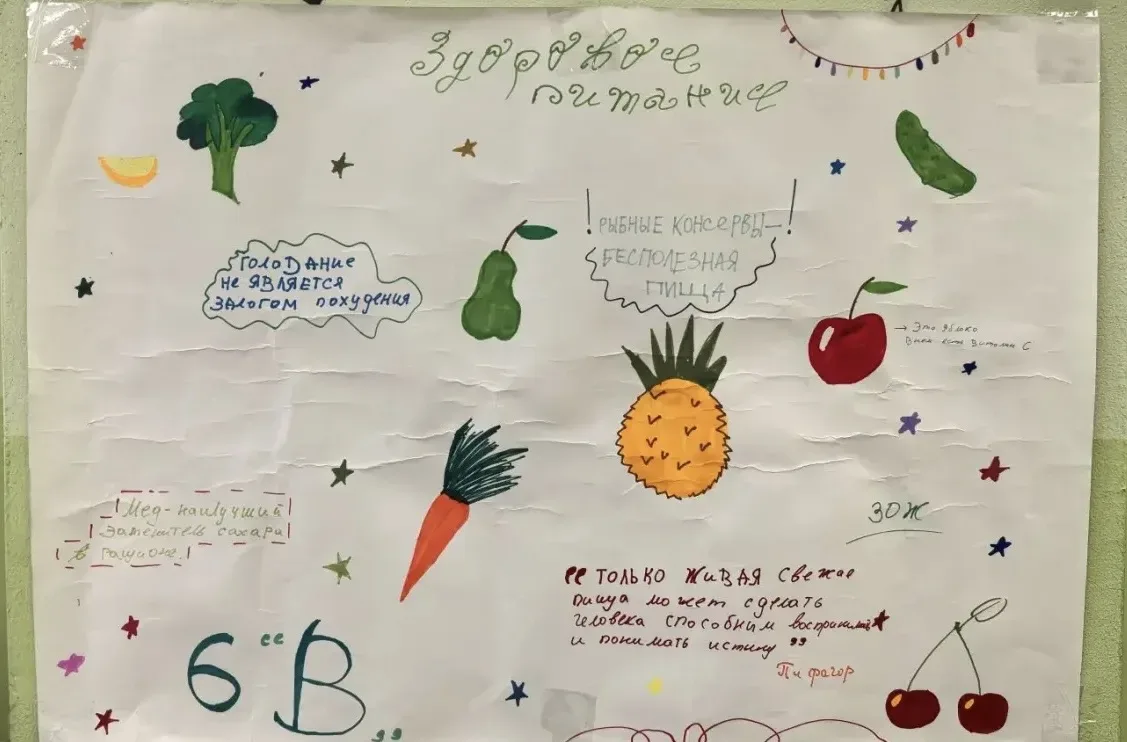 Здоровое
питание
ГОЛОДАНИЕ
НЕ ЯВЛЯЕТСЯ
ЗАЛОГОМ ПОХУДЕНИЯ
! РЫБНЫЕ КОНСЕРВЫ– !
БЕСПОЛЕЗНАЯ
ПИЩА
→ Это яблоко
В нем есть Витамин С
Мед-наилучший
заменитель сахара
в рационе.
ЗОЖ
“ТОЛЬКО ЖИВАЯ Свежая
пища может сделать
человека способным воспринимать
и понимать истину”
Пифагор
6 “В„